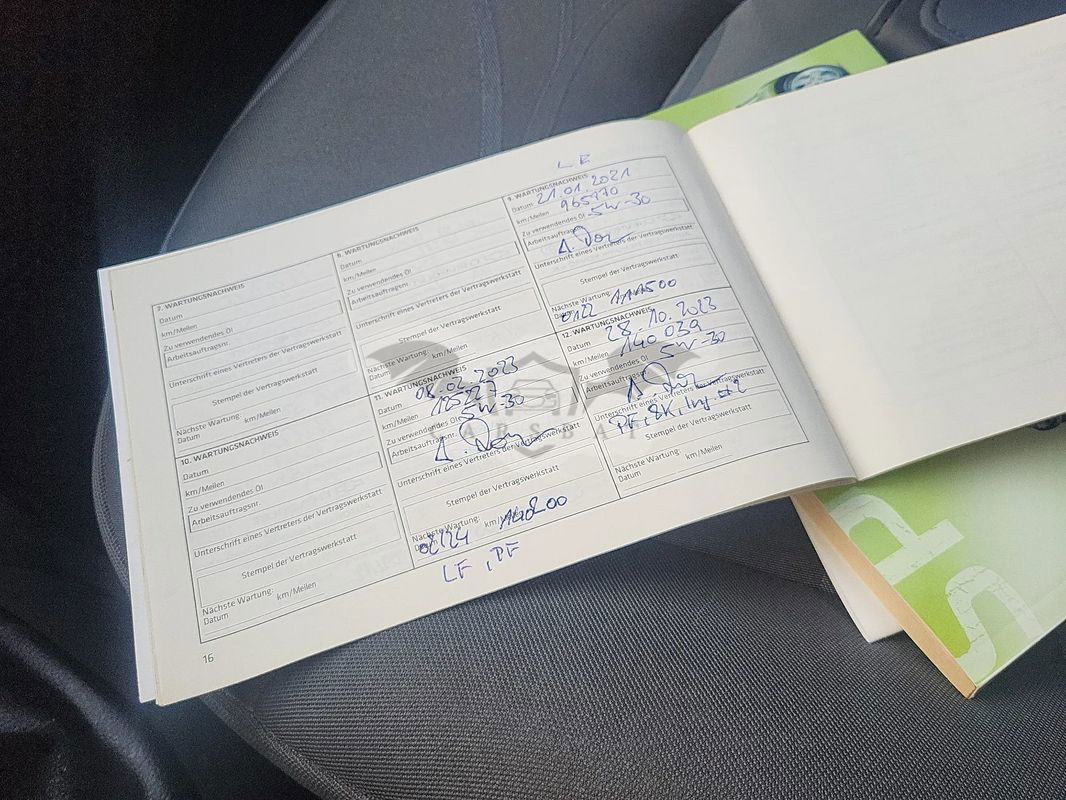 LF
7. WARTUNGSNACHWEIS
Datum
km/Meilen
Zu verwendendes Öl
Arbeitsauftragsnr.
Unterschrift eines Vertreters der Vertragswerkstatt
Stempel der Vertragswerkstatt
Nächste Wartung: km/Meilen
Datum
8. WARTUNGSNACHWEIS
Datum
km/Meilen
Zu verwendendes Öl
Arbeitsauftragsnr.
Unterschrift eines Vertreters der Vertragswerkstatt
Stempel der Vertragswerkstatt
Nächste Wartung: km/Meilen
Datum
9. WARTUNGSNACHWEIS
Datum 21.01.2021
km/Meilen
Zu verwendendes Öl 5W-30
Arbeitsauftragsnr.
Unterschrift eines Vertreters der Vertragswerkstatt
Stempel der Vertragswerkstatt
Nächste Wartung: 111500
0122
10. WARTUNGSNACHWEIS
Datum
km/Meilen
Zu verwendendes Öl
Arbeitsauftragsnr.
Unterschrift eines Vertreters der Vertragswerkstatt
Stempel der Vertragswerkstatt
Nächste Wartung: km/Meilen
Datum
11. WARTUNGSNACHWEIS
Datum 08.02.2023
km/Meilen
Zu verwendendes Öl 5W-30
Arbeitsauftragsnr.
Unterschrift eines Vertreters der Vertragswerkstatt
Stempel der Vertragswerkstatt
Nächste Wartung: km/Meilen
Datum
LF, PF
12. WARTUNGSNACHWEIS
Datum 28.10.2023
km/Meilen 140 029
Zu verwendendes Öl 5W-30
Arbeitsauftragsnr.
Unterschrift eines Vertreters der Vertragswerkstatt
Stempel der Vertragswerkstatt
Nächste Wartung: km/Meilen
Datum
16
CARSBAT
SP